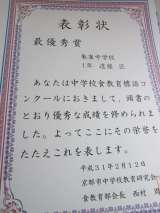 表彰状
最優秀賞
中学校
1年 遠藤
あなたは中学校食教育標語コ
ンクールにおきまして、頭書の
とおり優秀な成績を修められまし
た。よってここにその栄誉を
たたえこれを表します。
平成31年2月12日
京都市中学校教育研究会
食教育部会長 西村